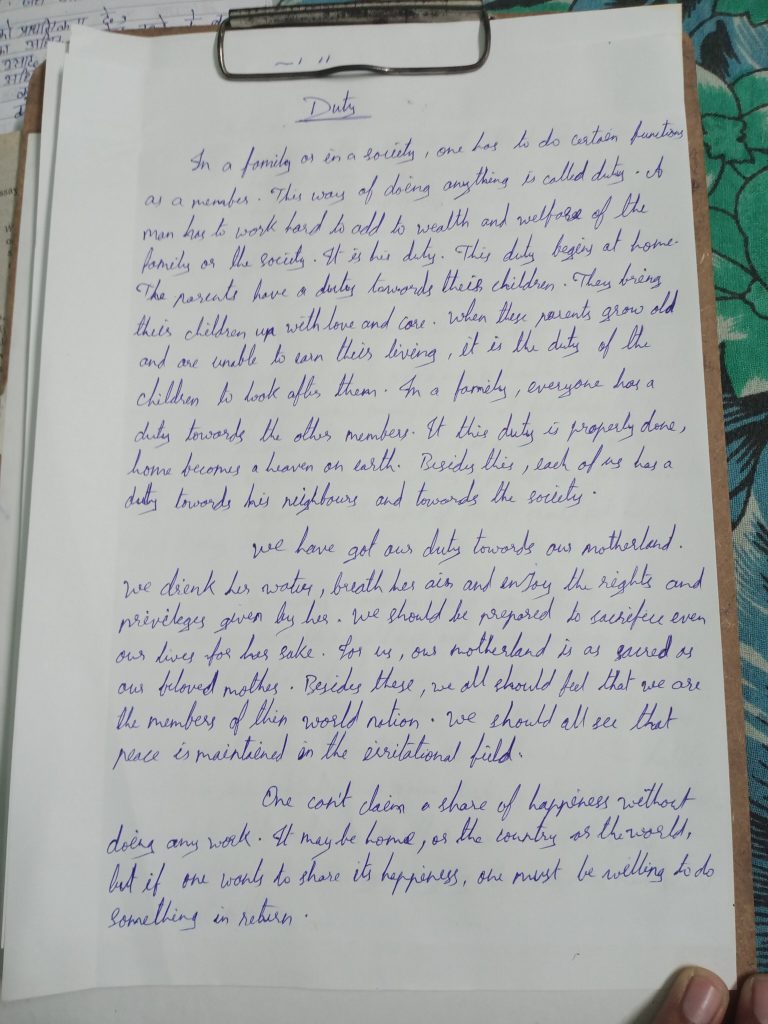 Duty
In a family or in a society, one has to do certain functions
as a member. This way of doing anything is called duty. A
man has to work hard to add to wealth and welfare of the
family or the society. It is his duty. This duty begins at home.
The parents have a duty towards their children. They bring
their children up with love and care. When these parents grow old
and are unable to earn their living, it is the duty of the
children to look after them. In a family, everyone has a
duty towards the other members. If this duty is properly done,
home becomes a heaven on earth. Besides this, each of us has a
duty towards his neighbours and towards the society.
We have got our duty towards our motherland.
We drink her water, breath her air and enjoy the rights and
privileges given by her. We should be prepared to sacrifice even
our lives for her sake. For us, our motherland is as sacred as
our beloved mother. Besides these, we all should feel that we are
the members of this world nation. We should all see that
peace is maintained in the irritational field.
One can't claim a share of happiness without
doing any work. It may be home, or the country or the world,
but if one wants to share its happiness, one must be willing to do
something in return.